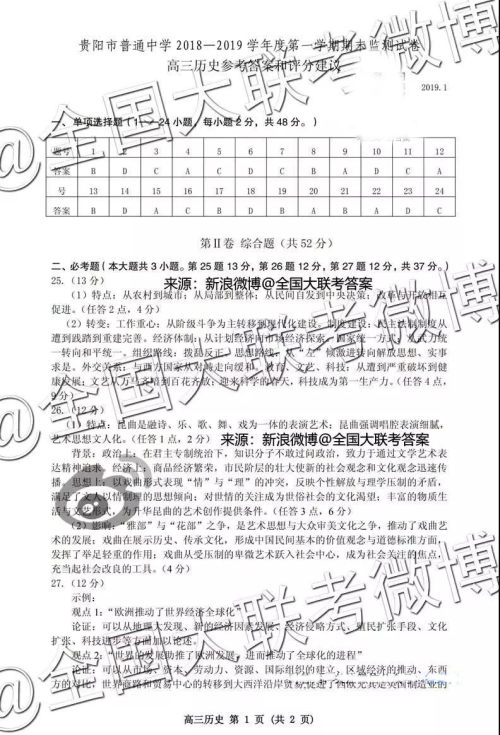 贵阳市普通中学2018—2019学年度第一学期期末监测试卷
高三历史参考答案和评分建议
2019.1
一、单项选择题（1—24小题，每小题2分，共48分。）
题号 1 2 3 4 5 6 7 8 9 10 11 12
答案 B D C A C D B A D C A
号 13 14 15 16 17 18 19 20 21 22 23 24
答案 B A C B D B A D C
第Ⅱ卷 综合题（共52分）
二、必考题（本大题共3小题。第25题13分，第26题12分，第27题12分，共37分。）
来源：新浪微博@全国大联考答案
25.（13分）
（1）特点：从农村到城市；从局部到整体；从民间自发到中央决策；改革与开放相互
促进。（任答2点，4分）
（2）转变：工作重心：从阶级斗争为主转移到现代化建设。制度建设：民主法制制度从
遭到践踏到重建完善。经济体制：从计划经济向市场经济探索。国家统一方式：从武力统
一转向和平统一。组织路线：拨乱反正。思想路线：从“左”倾激进转向解放思想、实事
求是。外交关系：与西方国家从对峙走向缓和。教育、文艺、科技：从遭到严重破坏到健
康发展；文艺从万马齐喑到百花齐放；迎来科学的春天，科技成为第一生产力。（任答4点，
9分）
26.（12分）
（1）特点：昆曲是融诗、乐、歌、舞、戏为一体的表演艺术；昆曲强调唱腔表演细腻，
艺术思想文人化。（任答1点，2分）
来源：新浪微博@全国大联考答案
背景：政治上：在君主专制统治下，知识分子不敢过问政治，致力于通过文学艺术表
达精神追求。经济上：商品经济繁荣，市民阶层的壮大使新的社会观念和文化观念迅速传
播。思想上：以戏曲形式表现“情”与“理”的冲突，反映个性解放与理学压制的矛盾，
满足了文人以情制理的思想倾向；对世情的关注成为世俗社会的文化渴望；丰富的物质生
活与文艺形式，为升华昆曲的艺术创作提供条件。（任答3点，6分）
（2）影响：“雅部”与“花部”之争，是艺术思想与大众审美文化之争，推动了戏曲艺
术的发展；戏曲在展示历史、传承文化，形成中国民间基本的价值观念与道德标准方面，
发挥了举足轻重的作用；戏曲从受压制的卑微艺术跃入社会中心，成为社会关注的焦点，
充当起社会改良的工具。（4分）
27.（12分）
示例：
观点1：“欧洲推动了世界经济全球化”
论证：可以从地理大发现、新的经济因素发展、经济侵略方式、殖民扩张手段、文化
扩张、科技进步等方面加以论述。
观点2：“世界的发展助推了欧洲发展，进而推动了全球化的进程”
论证：可以从市场、资本、劳动力、资源、国际组织的建立，区域经济的推动、东西
方的对比，世界商路和贸易中心的转移到大西洋沿岸贸易促进了西欧尤其是英国制造业的
高三历史 第 1 页（共 2 页）
@全国大联考微博
@全国大联考微博
@全国大联考微博